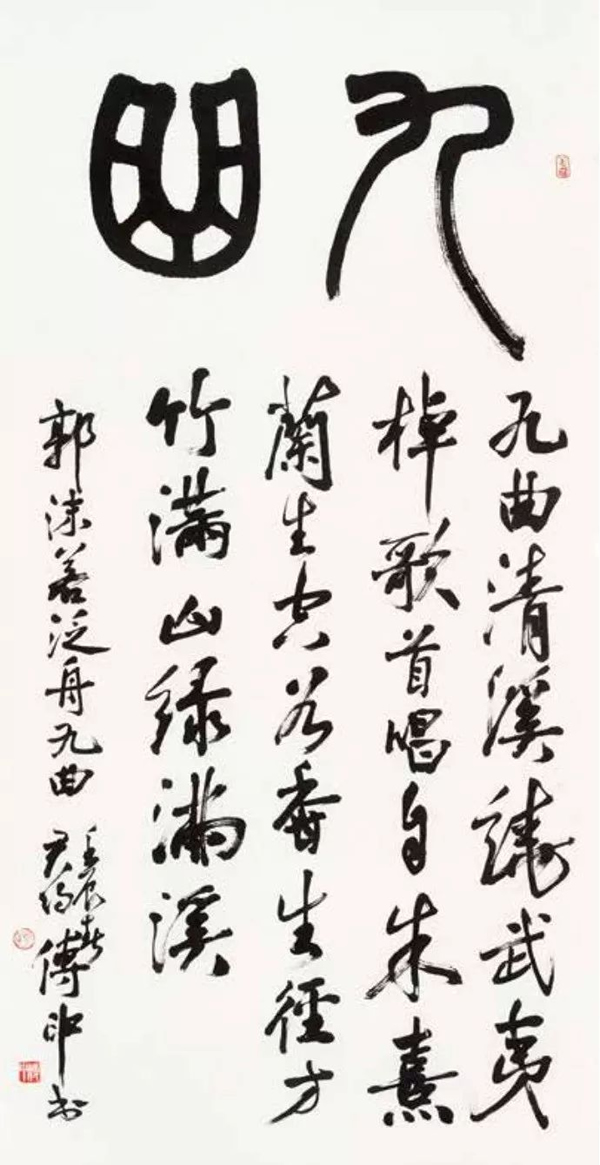 九曲
九曲清溪繞武夷
棹歌首唱自朱熹
蘭生空谷香生徑方
竹满山绿满溪
郭沫若泛舟九曲
壬辰春
傅印书